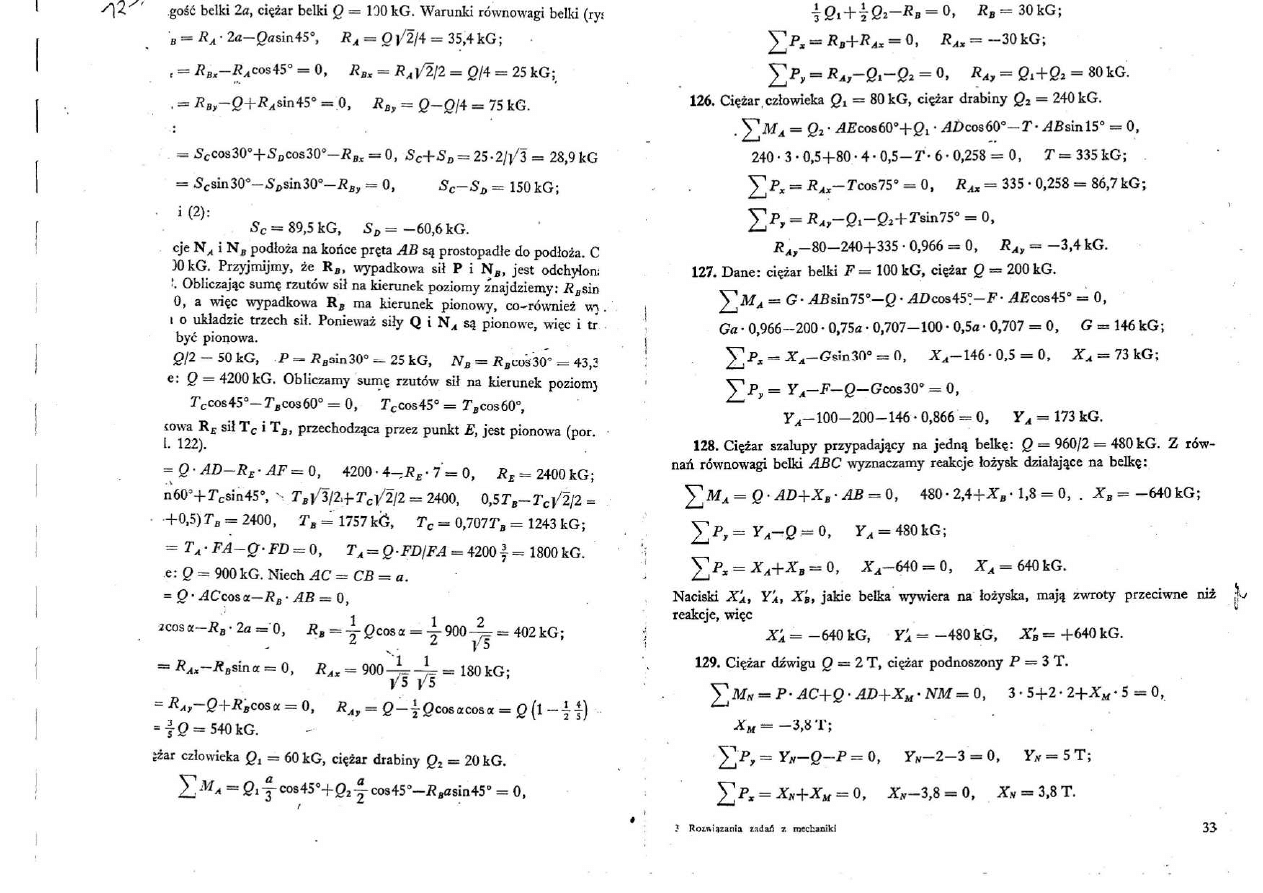 12
gość belki 2a, ciężar belki Q = 100 kG. Warunki równowagi belki (rys
B = R_A · 2a—Qasin45°, R_A = Q√2/4 = 35,4 kG;
= R_Bx—R_Acos45° = 0, R_Bx = R_A√2/2 = Q/4 = 25 kG;
= R_By—Q+R_Asin45° = 0, R_By = Q—Q/4 = 75 kG.
:
= S_Ccos30°+S_Dcos30°—R_Bx = 0, S_C+S_D = 25·2/√3 = 28,9 kG
= S_Csin30°—S_Dsin30°—R_By = 0, S_C—S_D = 150 kG;
i (2):
S_C = 89,5 kG, S_D = —60,6 kG.
cje N_A i N_B podłoża na końce pręta AB są prostopadłe do podłoża. C
00 kG. Przyjmijmy, że R_B, wypadkowa sił P i N_B, jest odchylon
. Obliczając sumę rzutów sił na kierunek poziomy znajdziemy: R_Bsin
0, a więc wypadkowa R_B ma kierunek pionowy, co również wy
o układzie trzech sił. Ponieważ siły Q i N_A są pionowe, więc i tr
być pionowa.
Q/2 — 50 kG, P = R_Bsin30° = 25 kG, N_B = R_Bcos30° = 43,3
e: Q = 4200 kG. Obliczamy sumę rzutów sił na kierunek poziomy
T_Ccos45°—T_Bcos60° = 0, T_Ccos45° = T_Bcos60°,
kowa R_E sił T_C i T_B, przechodząca przez punkt E, jest pionowa (por.
l. 122).
= Q·AD—R_E·AF = 0, 4200·4—R_E·7 = 0, R_E = 2400 kG;
n60°+T_Csin45°, T_B√3/2+T_C√2/2 = 2400, 0,5T_B—T_C√2/2 =
+0,5)T_B = 2400, T_B = 1757 kG, T_C = 0,707T_B = 1243 kG;
= T_A·FA—Q·FD = 0, T_A = Q·FD/FA = 4200 3/7 = 1800 kG.
e: Q = 900 kG. Niech AC = CB = a.
= Q·ACcos α—R_B·AB = 0,
acos α—R_B·2a = 0, R_B = 1/2 Qcos α = 1/2 900 2/√5 = 402 kG;
= R_Ax—R_Bsin α = 0, R_Ax = 900 1/√5 1/√5 = 180 kG;
= R_Ay—Q+R_Bcos α = 0, R_Ay = Q—1/2 Qcos αcos α = Q(1—1/2 4/5)
= 3/5 Q = 540 kG.
ężar człowieka Q₁ = 60 kG, ciężar drabiny Q₂ = 20 kG.
∑M_A = Q₁ a/3 cos45°+Q₂ a/2 cos45°—R_Basin45° = 0,
1/3 Q₁+1/2 Q₂—R_B = 0, R_B = 30 kG;
∑P_x = R_B+R_Ax = 0, R_Ax = —30 kG;
∑P_y = R_Ay—Q₁—Q₂ = 0, R_Ay = Q₁+Q₂ = 80 kG.
126. Ciężar człowieka Q₁ = 80 kG, ciężar drabiny Q₂ = 240 kG.
∑M_A = Q₂·AEcos60°+Q₁·ADcos60°—T·ABsin15° = 0,
240·3·0,5+80·4·0,5—T·6·0,258 = 0, T = 335 kG;
∑P_x = R_Ax—Tcos75° = 0, R_Ax = 335·0,258 = 86,7 kG;
∑P_y = R_Ay—Q₁—Q₂+Tsin75° = 0,
R_Ay—80—240+335·0,966 = 0, R_Ay = —3,4 kG.
127. Dane: ciężar belki F = 100 kG, ciężar Q = 200 kG.
∑M_A = G·ABsin75°—Q·ADcos45°—F·AEcos45° = 0,
Ga·0,966—200·0,75a·0,707—100·0,5a·0,707 = 0, G = 146 kG;
∑P_x = X_A—Gsin30° = 0, X_A—146·0,5 = 0, X_A = 73 kG;
∑P_y = Y_A—F—Q—Gcos30° = 0,
Y_A—100—200—146·0,866 = 0, Y_A = 173 kG.
128. Ciężar szalupy przypadający na jedną belkę: Q = 960/2 = 480 kG. Z rów-
nań równowagi belki ABC wyznaczamy reakcje łożysk działające na belkę:
∑M_A = Q·AD+X_B·AB = 0, 480·2,4+X_B·1,8 = 0, X_B = —640 kG;
∑P_y = Y_A—Q = 0, Y_A = 480 kG;
∑P_x = X_A+X_B = 0, X_A—640 = 0, X_A = 640 kG.
Naciski X'_A, Y'_A, X'_B, jakie belka wywiera na łożyska, mają zwroty przeciwne niż
reakcje, więc
X'_A = —640 kG, Y'_A = —480 kG, X'_B = +640 kG.
129. Ciężar dźwigu Q = 2 T, ciężar podnoszony P = 3 T.
∑M_N = P·AC+Q·AD+X_M·NM = 0, 3·5+2·2+X_M·5 = 0,
X_M = —3,8 T;
∑P_y = Y_N—Q—P = 0, Y_N—2—3 = 0, Y_N = 5 T;
∑P_x = X_N+X_M = 0, X_N—3,8 = 0, X_N = 3,8 T.
3 Rozwiązania zadań z mechaniki
33